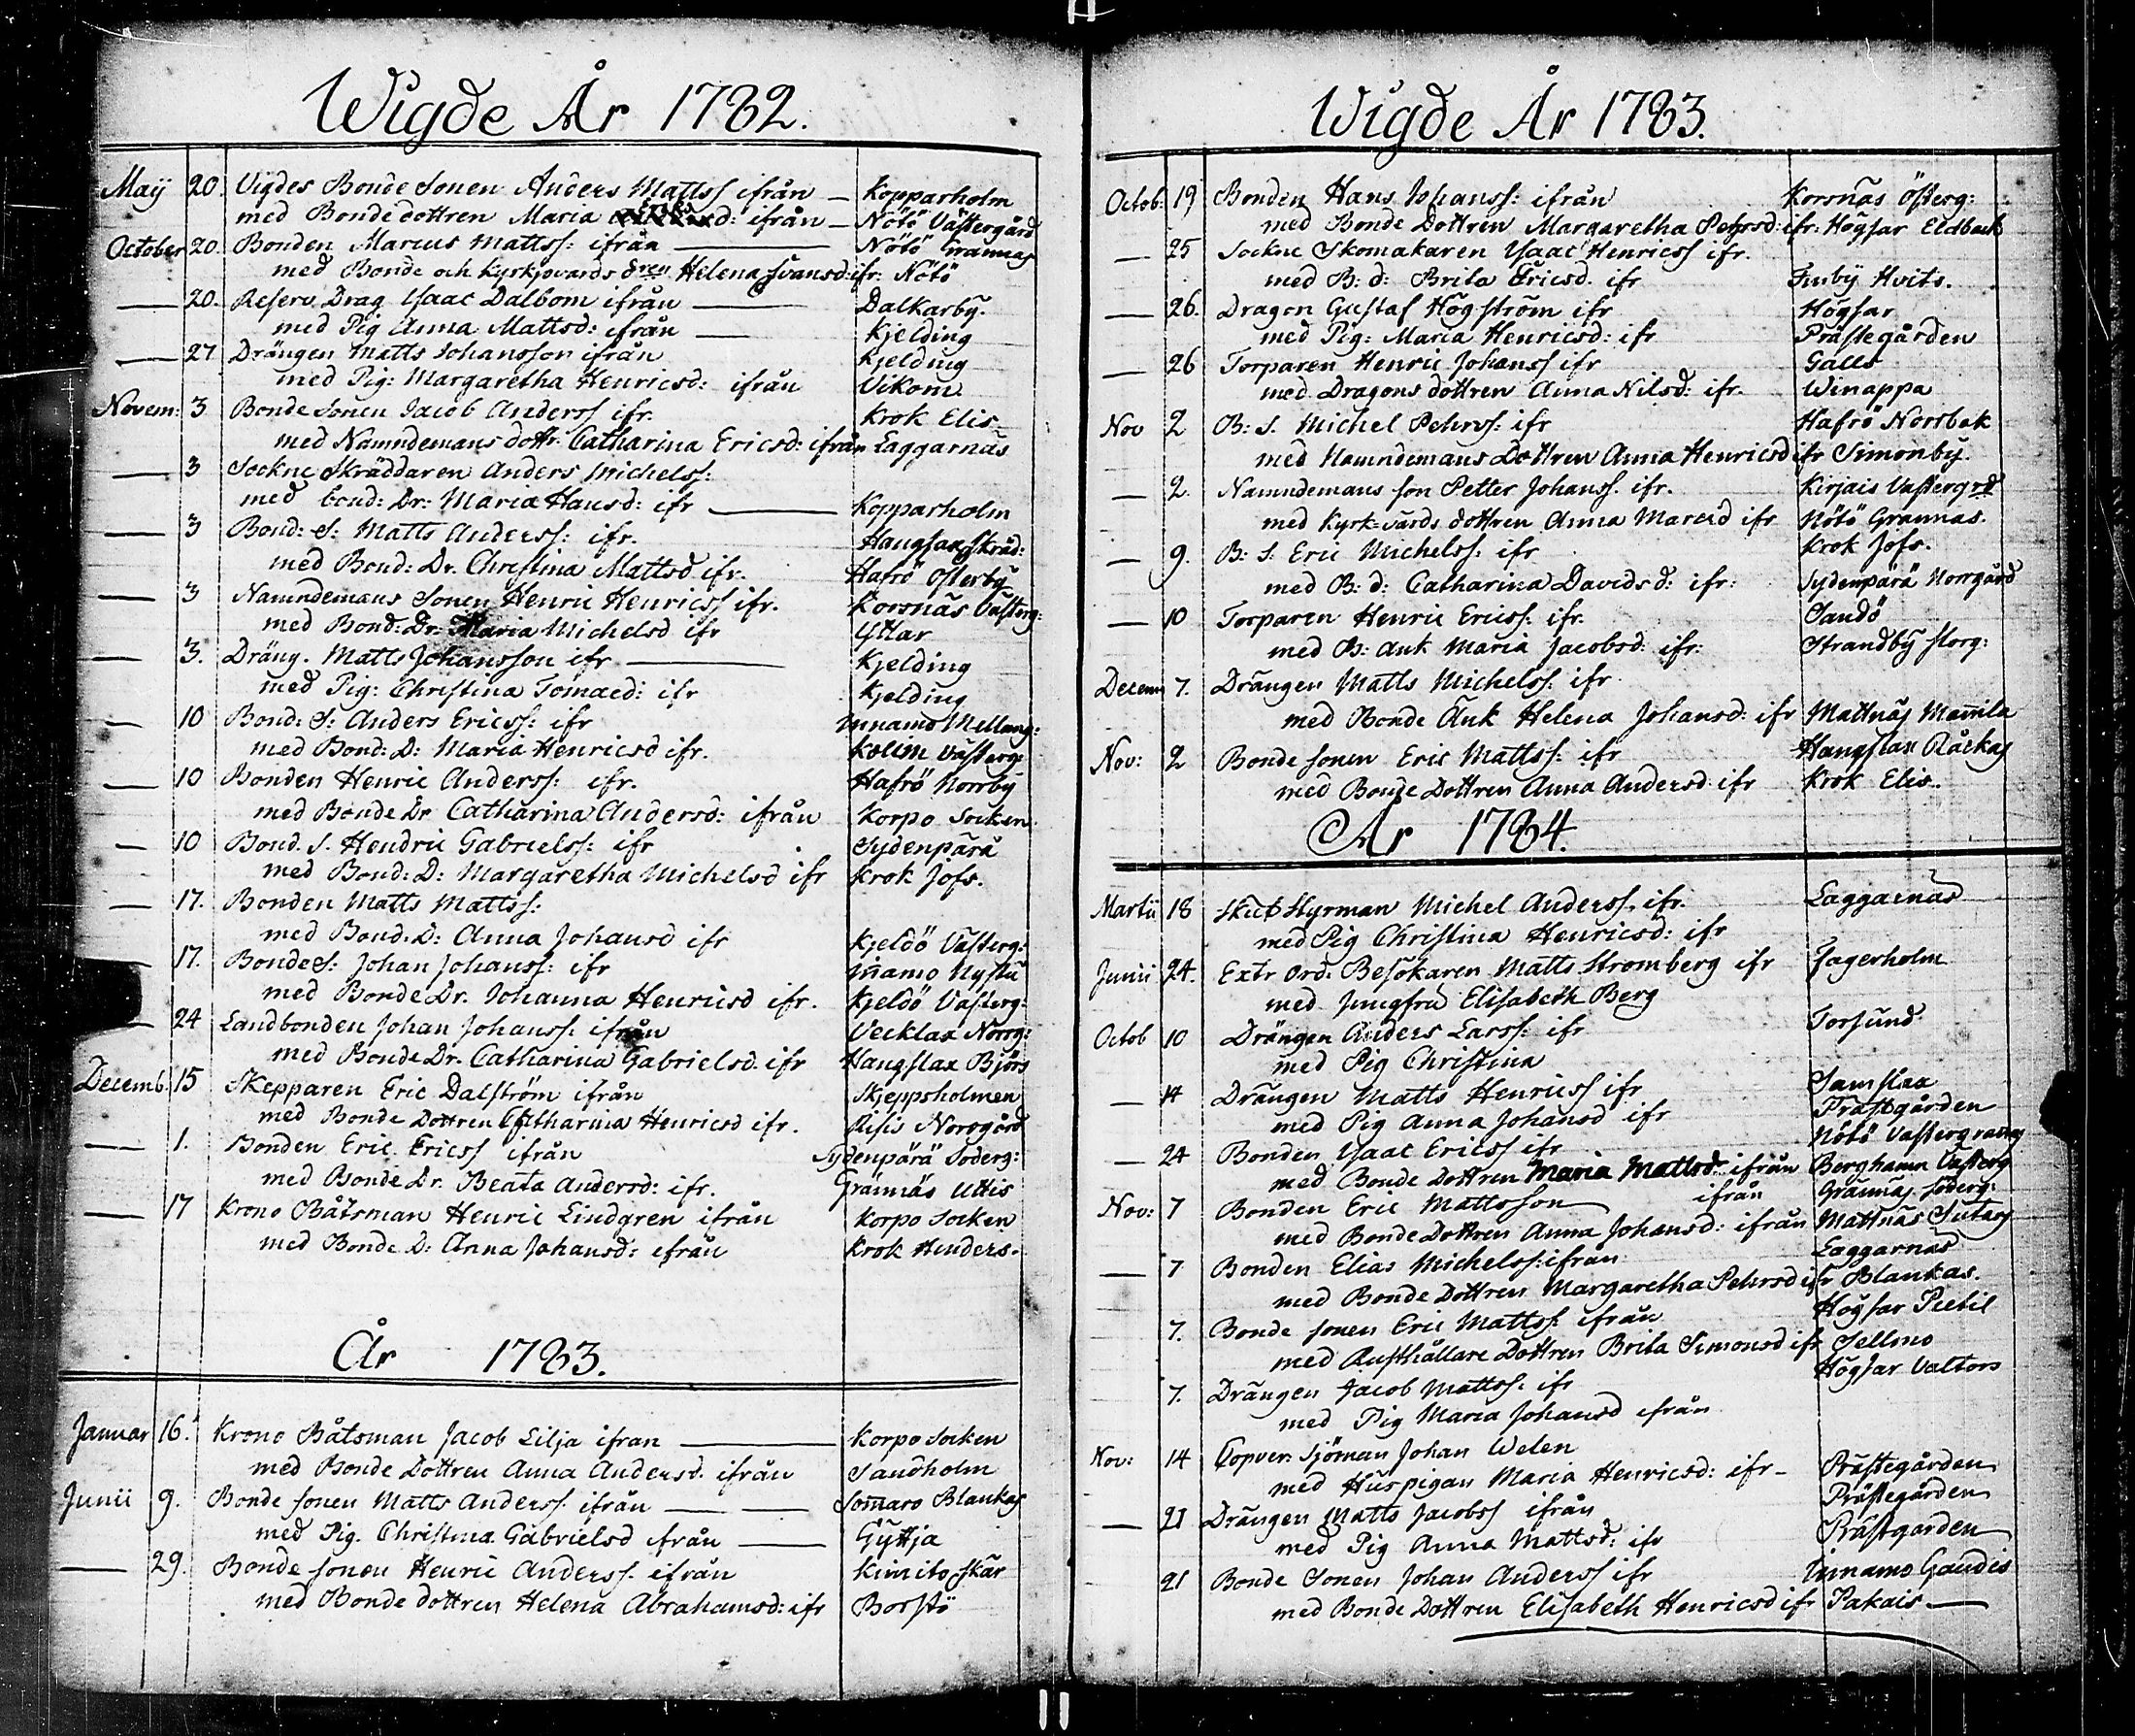 Wigde År 1782.
Maij 20. Vigdes Bonde Sonen Anders Mattss ifrån — Kopparholm
med Bonde dottren Maria d: ifrån — Nötö Västergård
October 20. Bonden Marcus Mattss: ifrån — Nötö Grannas
med Bonde och Kyrkjovards dren Helena Svansd: ifr: Nötö
— 20. Reserv Drag Isaac Dalbom ifrån — Dalkarby.
med Pig Anna Mattsd: ifrån — Kjelding
— 27 Drängen Matts Johansson ifrån Kjelding
med Pig: Margaretha Henricsd: ifrån Vikom
Novem: 3 Bonde Sonen Jacob Anderss ifr. Krok Elis
med Nämndemans dottr. Catharina Ericsd: ifrån Laggarnäs
— 3 Sockne Skräddaren Anders Michelss:
med bond: Dr: Maria Hansd: ifr — Kopparholm
— 3 Bond: S: Matts Anderss: ifr. Hangslax Skräd:
med Bond: Dr. Christina Mattsd ifr. Hafrö Osterby
— 3 Namndemans Sonen Henric Henricss ifr. Korsnäs Västerg:
med Bond: Dr: Maria Michelsd ifr Yttar
— 3. Dräng. Matts Johansson ifr — Kjelding
med Pig: Christina Tomaed: ifr Kjelding
— 10 Bond: S: Anders Ericss: ifr Innamo Mellang:
med Bond: D: Maria Henricsd ifr. Kolim Västerg:
— 10 Bonden Henric Anderss: ifr. Hafrö Norrby
med Bonde Dr Catharina Andersd: ifrån Korpo Socken
— 10 Bond. S. Hendric Gabrielss: ifr Sydenpärä
med Bond: D: Margaretha Michelsd ifr Krok Jofs.
— 17. Bonden Matts Mattss:
med Bond. D: Anna Johansd ifr Kjeldö Västerg:
17. Bonde S: Johan Johanss: ifr Inamo Nystu
med Bonde Dr. Johanna Henricsd ifr. Kjeldö Vasterg:
24 Landbonden Johan Johanss: ifrån Vecklax Norrg:
med Bonde Dr. Catharina Gabrielsd. ifr Hangslax Björs
Decemb. 15 Skepparen Eric Dalström ifrån Skjeppsholmen
med Bonde Dottren Catharina Henricsd ifr. Risis Norrgård
— 1. Bonden Eric Ericss ifrån Sydenpärä Söderg:
med Bonde Dr. Beata Andersd: ifr. Grännäs Uttis
— 17 Krono Båtsman Henric Lindgren ifrån Korpo Socken
med Bonde D: Anna Johansd: ifrån Krok Henders.
År 1783.
Januar 16. Krono Båtsman Jacob Lilja ifrån — Korpo Socken
med Bonde Dottren Anna Andersd. ifrån Sandholm
Junii 9. Bonde sonen Matts Anderss. ifrån — Somaro Blankas
med Pig. Christina Gabrielsd ifrån — Gyttja
— 29. Bonde sonen Henric Anderss. ifrån Kimito Skär
med Bonde dottren Helena Abrahamsd: ifr Borstö
Wigde År 1783.
Octob. 19 Bonden Hans Johanss: ifrån Korsnäs Österg:
med Bonde Dottren Margaretha Pehrsd: ifr: Högsar Eldback
— 25 Sockne Skomakaren Isaac Henricss ifr.
med B: d: Brita Ericsd. ifr Finby Hvits.
— 26. Dragon Gustaf Högström ifr Högsar
med Pig: Maria Henricsd: ifr Prästegården
— 26 Torparen Henric Johanss ifr Galls
med Dragons dottren Anna Nilsd: ifr. Winappa
Nov 2 B: S. Michel Pehrss: ifr Hafrö Norrbak
med Namndemans Dottren Anna Henricsd ifr Simonby
— 2. Namndemans son Petter Johanss. ifr. Kirjais Vastergrd
med Kyrk-vards dottren Anna Marcid ifr Nötö Grannas.
— 9. B: S. Eric Michelss: ifr Krok Jofs.
med B: d: Catharina Davidsd: ifr: Sydenpärä Norrgård
— 10 Torparen Henric Ericss: ifr. Sandö
med B: änk Maria Jacobsd: ifr: Strandby Storg:
Decem 7. Drängen Matts Michelss. ifr
med Bonde Änk Helena Johansd: ifr Mattnäs Mannila
Nov: 2 Bonde sonen Eric Mattss: ifr Hangslax Råckas
med Bonde Dottren Anna Andersd: ifr Krok Elis.
År 1784.
Martii 18 Skut Styrman Michel Anderss. ifr. Laggarnäs
med Pig Christina Henricsd: ifr
Junii 24. Extr Ord. Besökaren Matts Stromberg ifr Jagerholm
med Jungfru Elisabeth Berg
Octob 10 Drängen Anders Larss: ifr Torsund
med Pig Christina
— 14 Drängen Matts Henricss ifr Samslax
med Pig Anna Johansd ifr Prastgården
— 24 Bonden Isaac Ericss ifr Nötö Vastergrann
med Bonde Dottren Maria Mattsd: ifrån Berghamn Vasterg
Nov: 7 Bonden Eric Mattsson ifrån Grannäs söderg:
med Bonde Dottren Anna Johansd: ifrån Mattnäs Sutars
— 7 Bonden Elias Michelss: ifrån Laggarnäs
med Bonde Dottren Margaretha Pehrsd ifr Blankas.
7. Bonde sonen Eric Mattss. ifrån Högsar Pietil
med Rusthållare Dottren Brita Simonsd ifr Sellmo
7. Drängen Jacob Mattss. ifr Högsar Valtors
med Pig Maria Johansd ifrån
Nov: 14 Copver. Sjöman Johan Welen
med Huspigan Maria Henricsd: ifr- Prästegården
— 21 Drängen Matts Jacobss ifrån Prästegården
med Pig Anna Mattsd: ifr Prästgården
21 Bonde Sonen Johan Anderss ifr Innamo Gandis
med Bonde Dottren Elisabeth Henricsd ifr Pakais —